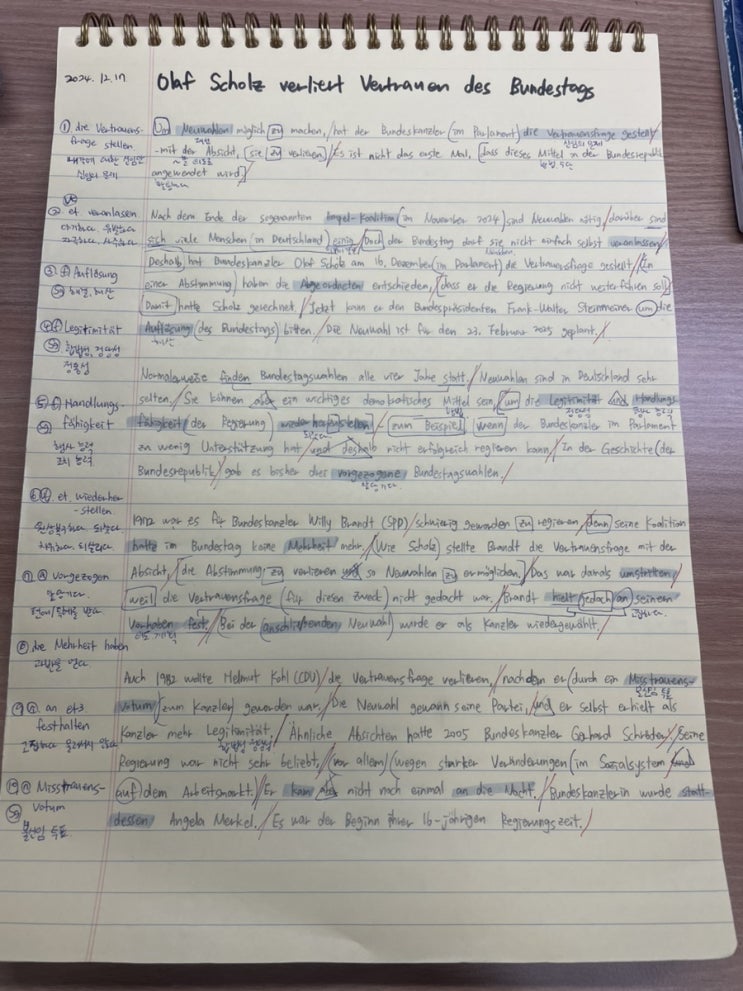 2024. 12. 17 Olaf Scholz verliert Vertrauen des Bundestags
① die Vertrauens-
frage stellen
신임의 문제
Um Neuwahlen möglich zu machen, hat der Bundeskanzler (im Parlament) die Vertrauensfrage gestellt
신임의 문제
- mit der Absicht, sie zu verlieren. Es ist nicht das erste Mal, dass dieses Mittel in der Bundesrepublik
angewendet wird.
② et. veranlassen
③ ⓕ Auflösung
해결, 해산
④ ⓕ Legitimität
합법성, 정당성
정통성
Nach dem Ende der sogenannten Ampel-Koalition (im November 2024) sind Neuwahlen nötig, darüber sind
sich viele Menschen (in Deutschland) einig. Doch der Bundestag darf sie nicht einfach selbst veranlassen.
Deshalb hat Bundeskanzler Olaf Scholz am 16. Dezember (im Parlament) die Vertrauensfrage gestellt. In
einer Abstimmung) haben die Abgeordneten entschieden, dass er die Regierung nicht weiterführen soll.
Damit hatte Scholz gerechnet. Jetzt kann er den Bundespräsidenten Frank-Walter Steinmeier um die
Auflösung (des Bundestags) bitten. Die Neuwahl ist für den 23. Februar 2025 geplant.
해산
⑤ ⓕ Handlungs-
fähigkeit
행사 능력
Normalerweise finden Bundestagswahlen alle vier Jahre statt. Neuwahlen sind in Deutschland sehr
selten. Sie können aber ein wichtiges demokratisches Mittel sein, um die Legitimität und Handlungs-
정당성
fähigkeit (der Regierung) wiederherzustellen - zum Beispiel, wenn der Bundeskanzler im Parlament
zu wenig Unterstützung hat und deshalb nicht erfolgreich regieren kann. In der Geschichte (der
Bundesrepublik) gab es bisher drei vorgezogene Bundestagswahlen.
앞당기다.
⑥ et. wiederher-
stellen
⑦ ⓐ vorgezogen
앞당기다.
⑧ die Mehrheit haben
1972 war es für Bundeskanzler Willy Brandt (SPD) schwierig geworden zu regieren, denn seine Koalition
hatte im Bundestag keine Mehrheit mehr. (Wie Scholz) stellte Brandt die Vertrauensfrage mit der
Absicht, die Abstimmung zu verlieren und so Neuwahlen zu ermöglichen. Das war damals umstritten,
weil die Vertrauensfrage (für diesen Zweck) nicht gedacht war. Brandt hielt jedoch an seinem
Vorhaben fest. Bei der (anschließenden) Neuwahl wurde er als Kanzler wiedergewählt.
⑨ ⓝ an et3
festhalten
⑩ ⓝ Misstrauens-
votum
불신임 투표
Auch 1982 wollte Helmut Kohl (CDU) die Vertrauensfrage verlieren, nachdem er (durch ein Misstrauens-
불신임 투표
votum) zum Kanzler geworden war. Die Neuwahl gewann seine Partei, und er selbst erhielt als
Kanzler mehr Legitimität. Ähnliche Absichten hatte 2005 Bundeskanzler Gerhard Schröder. Seine
합법성 정당성
Regierung war nicht sehr beliebt, (vor allem) (wegen starker Veränderungen (im Sozialsystem und
auf dem Arbeitsmarkt.) Er kam aber nicht noch einmal an die Macht. Bundeskanzlerin wurde statt-
dessen Angela Merkel. Es war der Beginn ihrer 16-jährigen Regierungszeit.